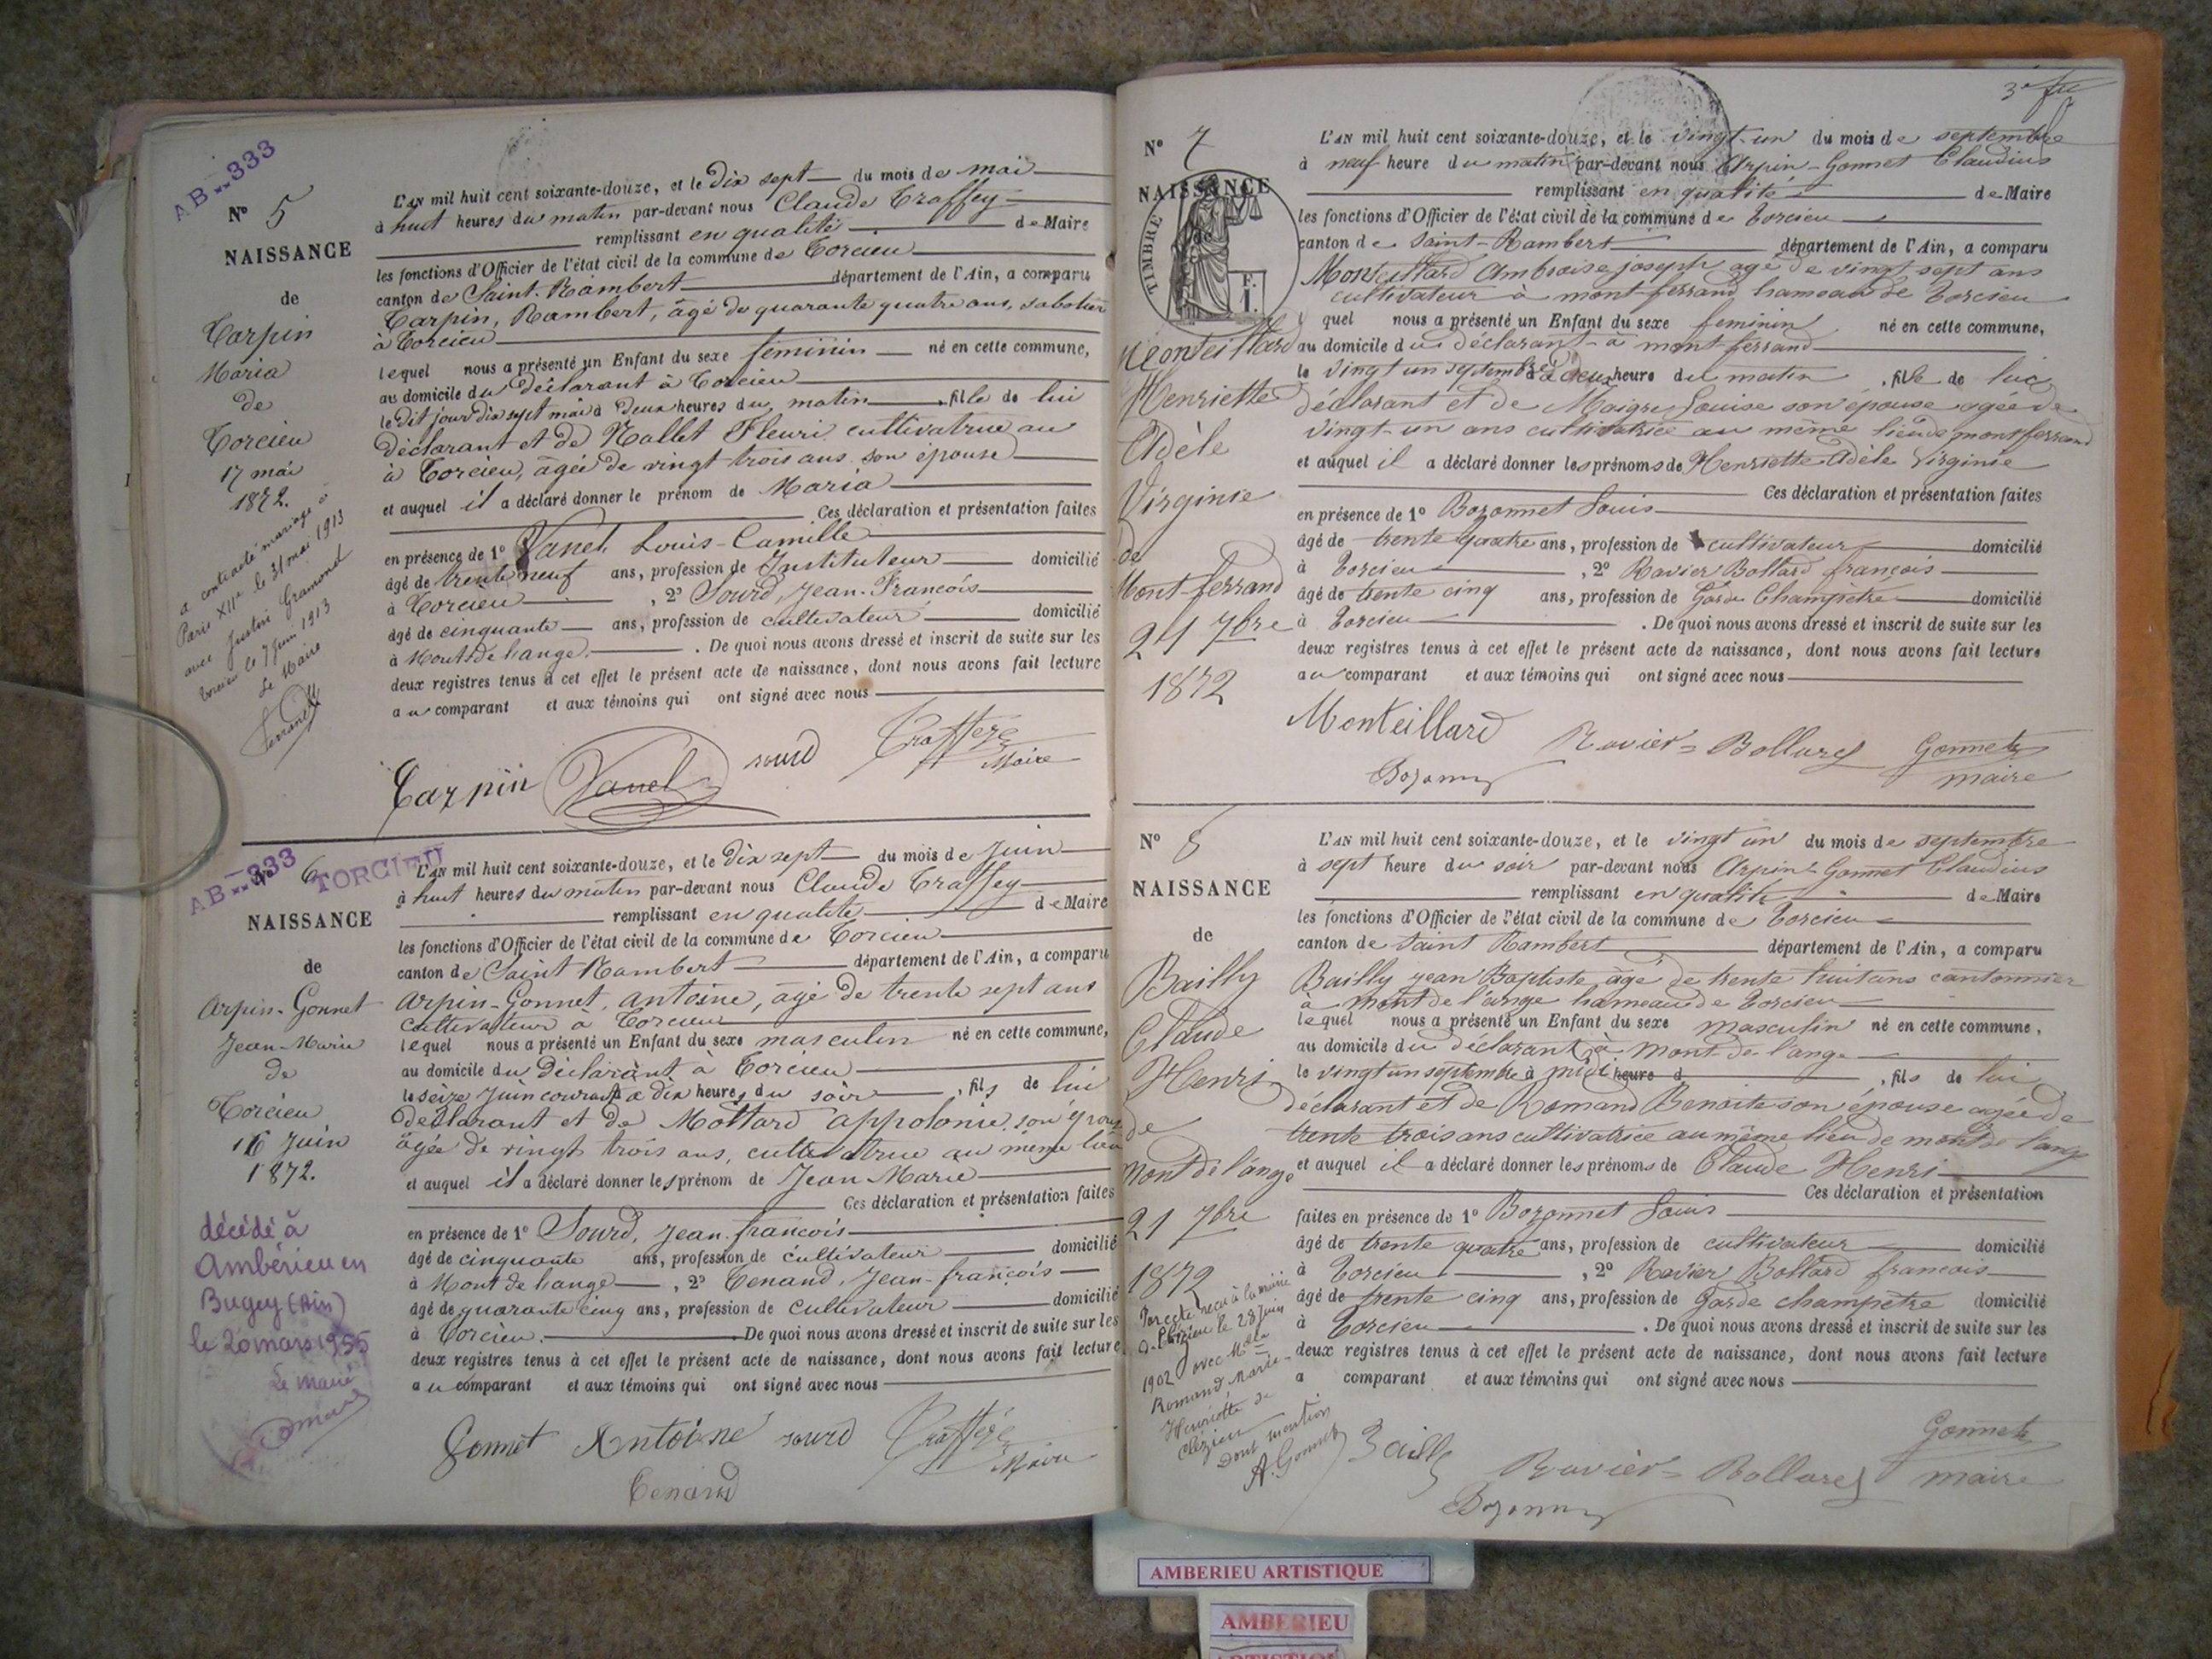 AB..333
N° 5
NAISSANCE
de
Carpin
Maria
de
Torcieu
17 mai
1872.
a contracté mariage à
Paris XIIe le 31 mai 1913
avec Justin Gramond
Torcieu le 7 Juin 1913
Le Maire
L'AN mil huit cent soixante-douze, et le dix sept du mois de mai
à huit heures du matin par-devant nous Claude Traffey
remplissant en qualité de Maire
les fonctions d'Officier de l'état civil de la commune de Torcieu
canton de Saint-Rambert département de l'Ain, a comparu
Carpin, Rambert, âgé de quarante quatre ans, sabotier
à Torcieu
lequel nous a présenté un Enfant du sexe féminin né en cette commune,
au domicile du déclarant à Torcieu
le dit jour dix sept mai à deux heures du matin, fille de lui
déclarant et de Nallet Fleuri cultivatrice au
à Torcieu, âgée de vingt trois ans son épouse
et auquel il a déclaré donner le prénom de Maria
Ces déclaration et présentation faites
en présence de 1° Vanel, Louis-Camille
âgé de trente neuf ans, profession de Instituteur domicilié
à Torcieu, 2° Sourd, Jean-François
âgé de cinquante ans, profession de cultivateur domicilié
à Mont de lange. De quoi nous avons dressé et inscrit de suite sur les
deux registres tenus à cet effet le présent acte de naissance, dont nous avons fait lecture
au comparant et aux témoins qui ont signé avec nous
Carpin Vanel sourd Traffey
Maire
AB..333 TORCIEU
N° 6
NAISSANCE
de
Arpin-Gonnet
Jean-Marie
de
Torcieu
16 Juin
1872.
décédé à
Ambérieu en
Bugey (Ain)
le 20 mars 1955
Le maire
L'AN mil huit cent soixante-douze, et le dix sept du mois de Juin
à huit heures du matin par-devant nous Claude Traffey
remplissant en qualité de Maire
les fonctions d'Officier de l'état civil de la commune de Torcieu
canton de Saint Rambert département de l'Ain, a comparu
Arpin-Gonnet, antoine, âgé de trente sept ans
cultivateur à Torcieu
lequel nous a présenté un Enfant du sexe masculin né en cette commune,
au domicile du déclarant à Torcieu
le seize Juin courant à dix heures du soir, fils de lui
déclarant et de Mottard appolonie, son épouse
âgée de vingt trois ans, cultivatrice au même lieu
et auquel il a déclaré donner les prénom de Jean Marie
Ces déclaration et présentation faites
en présence de 1° Sourd, Jean françois
âgé de cinquante ans, profession de cultivateur domicilié
à Mont de lange, 2° Tenand, Jean-françois
âgé de quarante cinq ans, profession de cultivateur domicilié
à Torcieu. De quoi nous avons dressé et inscrit de suite sur les
deux registres tenus à cet effet le présent acte de naissance, dont nous avons fait lecture
au comparant et aux témoins qui ont signé avec nous
Gonnet Antoine sourd Traffey
Maire
Tenand
3e
N° 7
NAISSANCE
TIMBRE
de
F.
1.
Monteillard
Henriette
Adèle
Virginie
de
Mont-ferrand
21 7bre
1872
L'AN mil huit cent soixante-douze, et le vingt-un du mois de septembre
à neuf heure du matin par-devant nous Arpin-Gonnet Claudius
remplissant en qualité de Maire
les fonctions d'Officier de l'état civil de la commune de Torcieu
canton de Saint-Rambert département de l'Ain, a comparu
Monteillard Ambroise joseph agé de vingt sept ans
cultivateur à mont-ferrand hameau de Torcieu
quel nous a présenté un Enfant du sexe feminin né en cette commune,
au domicile du déclarant à mont ferrand
le vingt un septembre à deux heure du matin, fille de lui
déclarant et de Maigre Louise son épouse agée de
vingt-un ans cultivatrice au même lieu de montferrand
et auquel il a déclaré donner les prénoms de Henriette Adèle Virginie
Ces déclaration et présentation faites
en présence de 1° Bozonnet Louis
âgé de trente quatre ans, profession de cultivateur domicilié
à Torcieu, 2° Ravier Bollard françois
âgé de trente cinq ans, profession de Garde Champetre domicilié
à Torcieu. De quoi nous avons dressé et inscrit de suite sur les
deux registres tenus à cet effet le présent acte de naissance, dont nous avons fait lecture
au comparant et aux témoins qui ont signé avec nous
Monteillard Ravier-Bollard Gonnet
Bozonnet maire
N° 8
NAISSANCE
de
Bailly
Claude
Henri
de
Mont de l'ange
21 7bre
1872
reçu à la mairie
le 28 Juin
1902 avec Mlle
Romand Marie-
Henriette de
Clézieu
Dont mention
A. Gonnet
L'AN mil huit cent soixante-douze, et le vingt un du mois de septembre
à sept heure du soir par-devant nous Arpin-Gonnet Claudius
remplissant en qualité de Maire
les fonctions d'Officier de l'état civil de la commune de Torcieu
canton de Saint Rambert département de l'Ain, a comparu
Bailly jean Baptiste âgé de trente huit ans cantonnier
à mont de l'ange hameau de Torcieu
lequel nous a présenté un Enfant du sexe masculin né en cette commune,
au domicile du déclarant à mont-de l'ange
le vingt un septembre à midi heure d, fils de lui
déclarant et de Romand Benoite son épouse agée de
trente trois ans cultivatrice au même lieu de mont de l'ange
et auquel il a déclaré donner les prénoms de Claude Henri
Ces déclaration et présentation
faites en présence de 1° Bozonnet Louis
âgé de trente quatre ans, profession de cultivateur domicilié
à Torcieu, 2° Ravier Bollard francois
âgé de trente cinq ans, profession de Garde champetre domicilié
à Torcieu. De quoi nous avons dressé et inscrit de suite sur les
deux registres tenus à cet effet le présent acte de naissance, dont nous avons fait lecture
a comparant et aux témoins qui ont signé avec nous
Bailly Ravier-Bollard Gonnet
Bozonnet maire
AMBERIEU ARTISTIQUE
AMBERIEU
ARTISTIQUE